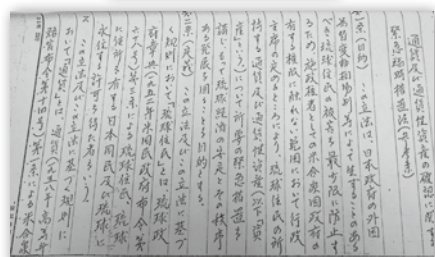 通貨及び通貨性資産の確認に関する
緊急臨時措置法(参考案)
第一条(目的) この立法は、日本政府の外国
為替変動相場制 等によって生ずることのある
べき琉球住民の被害を最少限に防止す
るため、施政権者としての米合衆国政府の
有する権限に触れない範囲において行政
主席の定めるところにより琉球住民の所
持する通貨及び通貨性資産(以下「資
産」という)について所要の緊急措置を
講じもって琉球経済の安定とその秩序
ある発展を図ることを目的とする。
第二条(定義) この立法及びこの立法に基づ
く規則において「琉球住民」とは、琉球政
府章典(一九五二年米国民政府布令第
六十八号)第三条による琉球住民、琉球
に住所を有する日本国民及び琉球に
永住する許可を得た者をいう。
2 この立法及びこの立法に基づく規則に
おいて「通貨」とは、通貨(一九五八年高等弁
務官布令第十四号)第一条による米合衆